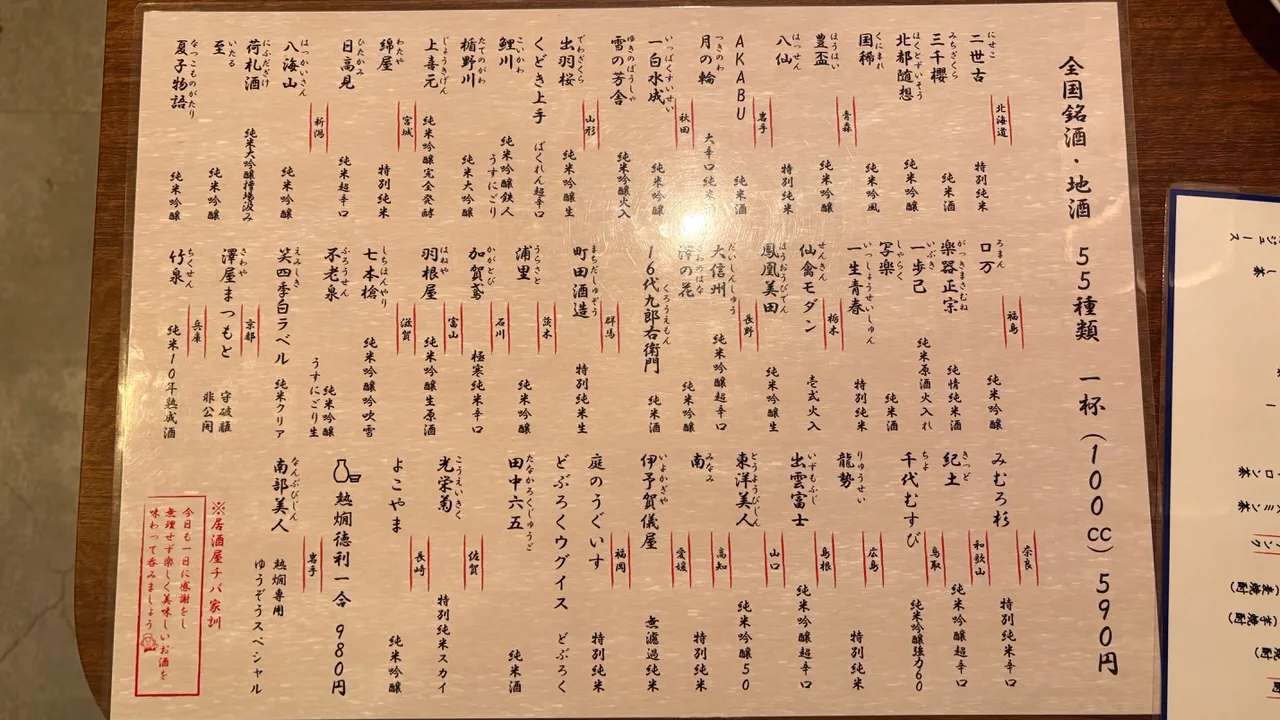 全国銘酒・地酒 55種類 一杯（100cc）590円
北海道
二世古 にせこ 特別純米
三千櫻 みちざくら 純米酒
北都随想 ほくとずいそう 純米吟醸
国稀 くにまれ 純米吟風
青森
豊盃 ほうはい 純米吟醸
八仙 はっせん 特別純米
岩手
AKABU 純米酒
月の輪 つきのわ 大辛口純米
秋田
一白水成 いっぱくすいせい 純米吟醸
雪の芳舎 ゆきのぼうしゃ 純米吟醸火入
山形
出羽桜 でわざくら 純米吟醸生
くどき上手 ばくれん超辛口
鯉川 こいかわ 純米吟醸鉄人うすにごり
楯野川 たてのがわ 純米大吟醸
上喜元 じょうきげん 純米吟醸完全発酵
宮城
綿屋 わたや 特別純米
日高見 ひたかみ 純米超辛口
新潟
八海山 はっかいさん 純米吟醸
荷札酒 にふだざけ 純米大吟醸槽場汲み
至 いたる 純米吟醸
夏子物語 なつこものがたり 純米吟醸
福島
ロ万 ろまん 純米吟醸
楽器正宗 がっきまさむね 純情純米酒
一歩己 いぶき 純米原酒火入れ
写楽 しゃらく 純米酒
一生青春 いっしょうせいしゅん 特別純米
栃木
仙禽モダン せんきん 壱式火入
鳳凰美田 ほうおうびでん 純米吟醸生
長野
大信州 だいしんしゅう 純米吟醸超辛口
澤の花 さわのはな 純米吟醸
16代九郎右衛門 くろうえもん 純米酒
群馬
町田酒造 まちだしゅぞう 特別純米生
茨木
浦里 うらさと 純米吟醸
石川
加賀鳶 かがとび 極寒純米辛口
富山
羽根屋 はねや 純米吟醸生原酒
滋賀
七本槍 しちほんやり 純米吟醸吹雪
不老泉 ふろうせん 純米吟醸うすにごり生
笑四季白ラベル えみしき 純米クリア
京都
澤屋まつもと さわや 守破離 非公開
兵庫
竹泉 ちくせん 純米10年熟成酒
奈良
みむろ杉 特別純米辛口
和歌山
紀土 きっど 純米吟醸超辛口
鳥取
千代むすび ちよ 純米吟醸強力60
広島
龍勢 りゅうせい 特別純米
島根
出雲富士 いずもふじ 純米吟醸超辛口
山口
東洋美人 とうようびじん 純米吟醸50
高知
南 みなみ 特別純米
愛媛
伊予賀儀屋 いよかぎや 無濾過純米
福岡
庭のうぐいす 特別純米
どぶろくウグイス どぶろく
田中六五 たなかろくじゅうご 純米酒
佐賀
光栄菊 こうえいぎく 特別純米スカイ
長崎
よこやま 純米吟醸
熱燗徳利一合 980円
岩手
南部美人 なんぶびじん 熱燗専用 ゆうぞうスペシャル
※居酒屋チバ家訓
今日も一日に感謝をし
無理せず楽しく美味しいお酒を
味わって呑みましょう